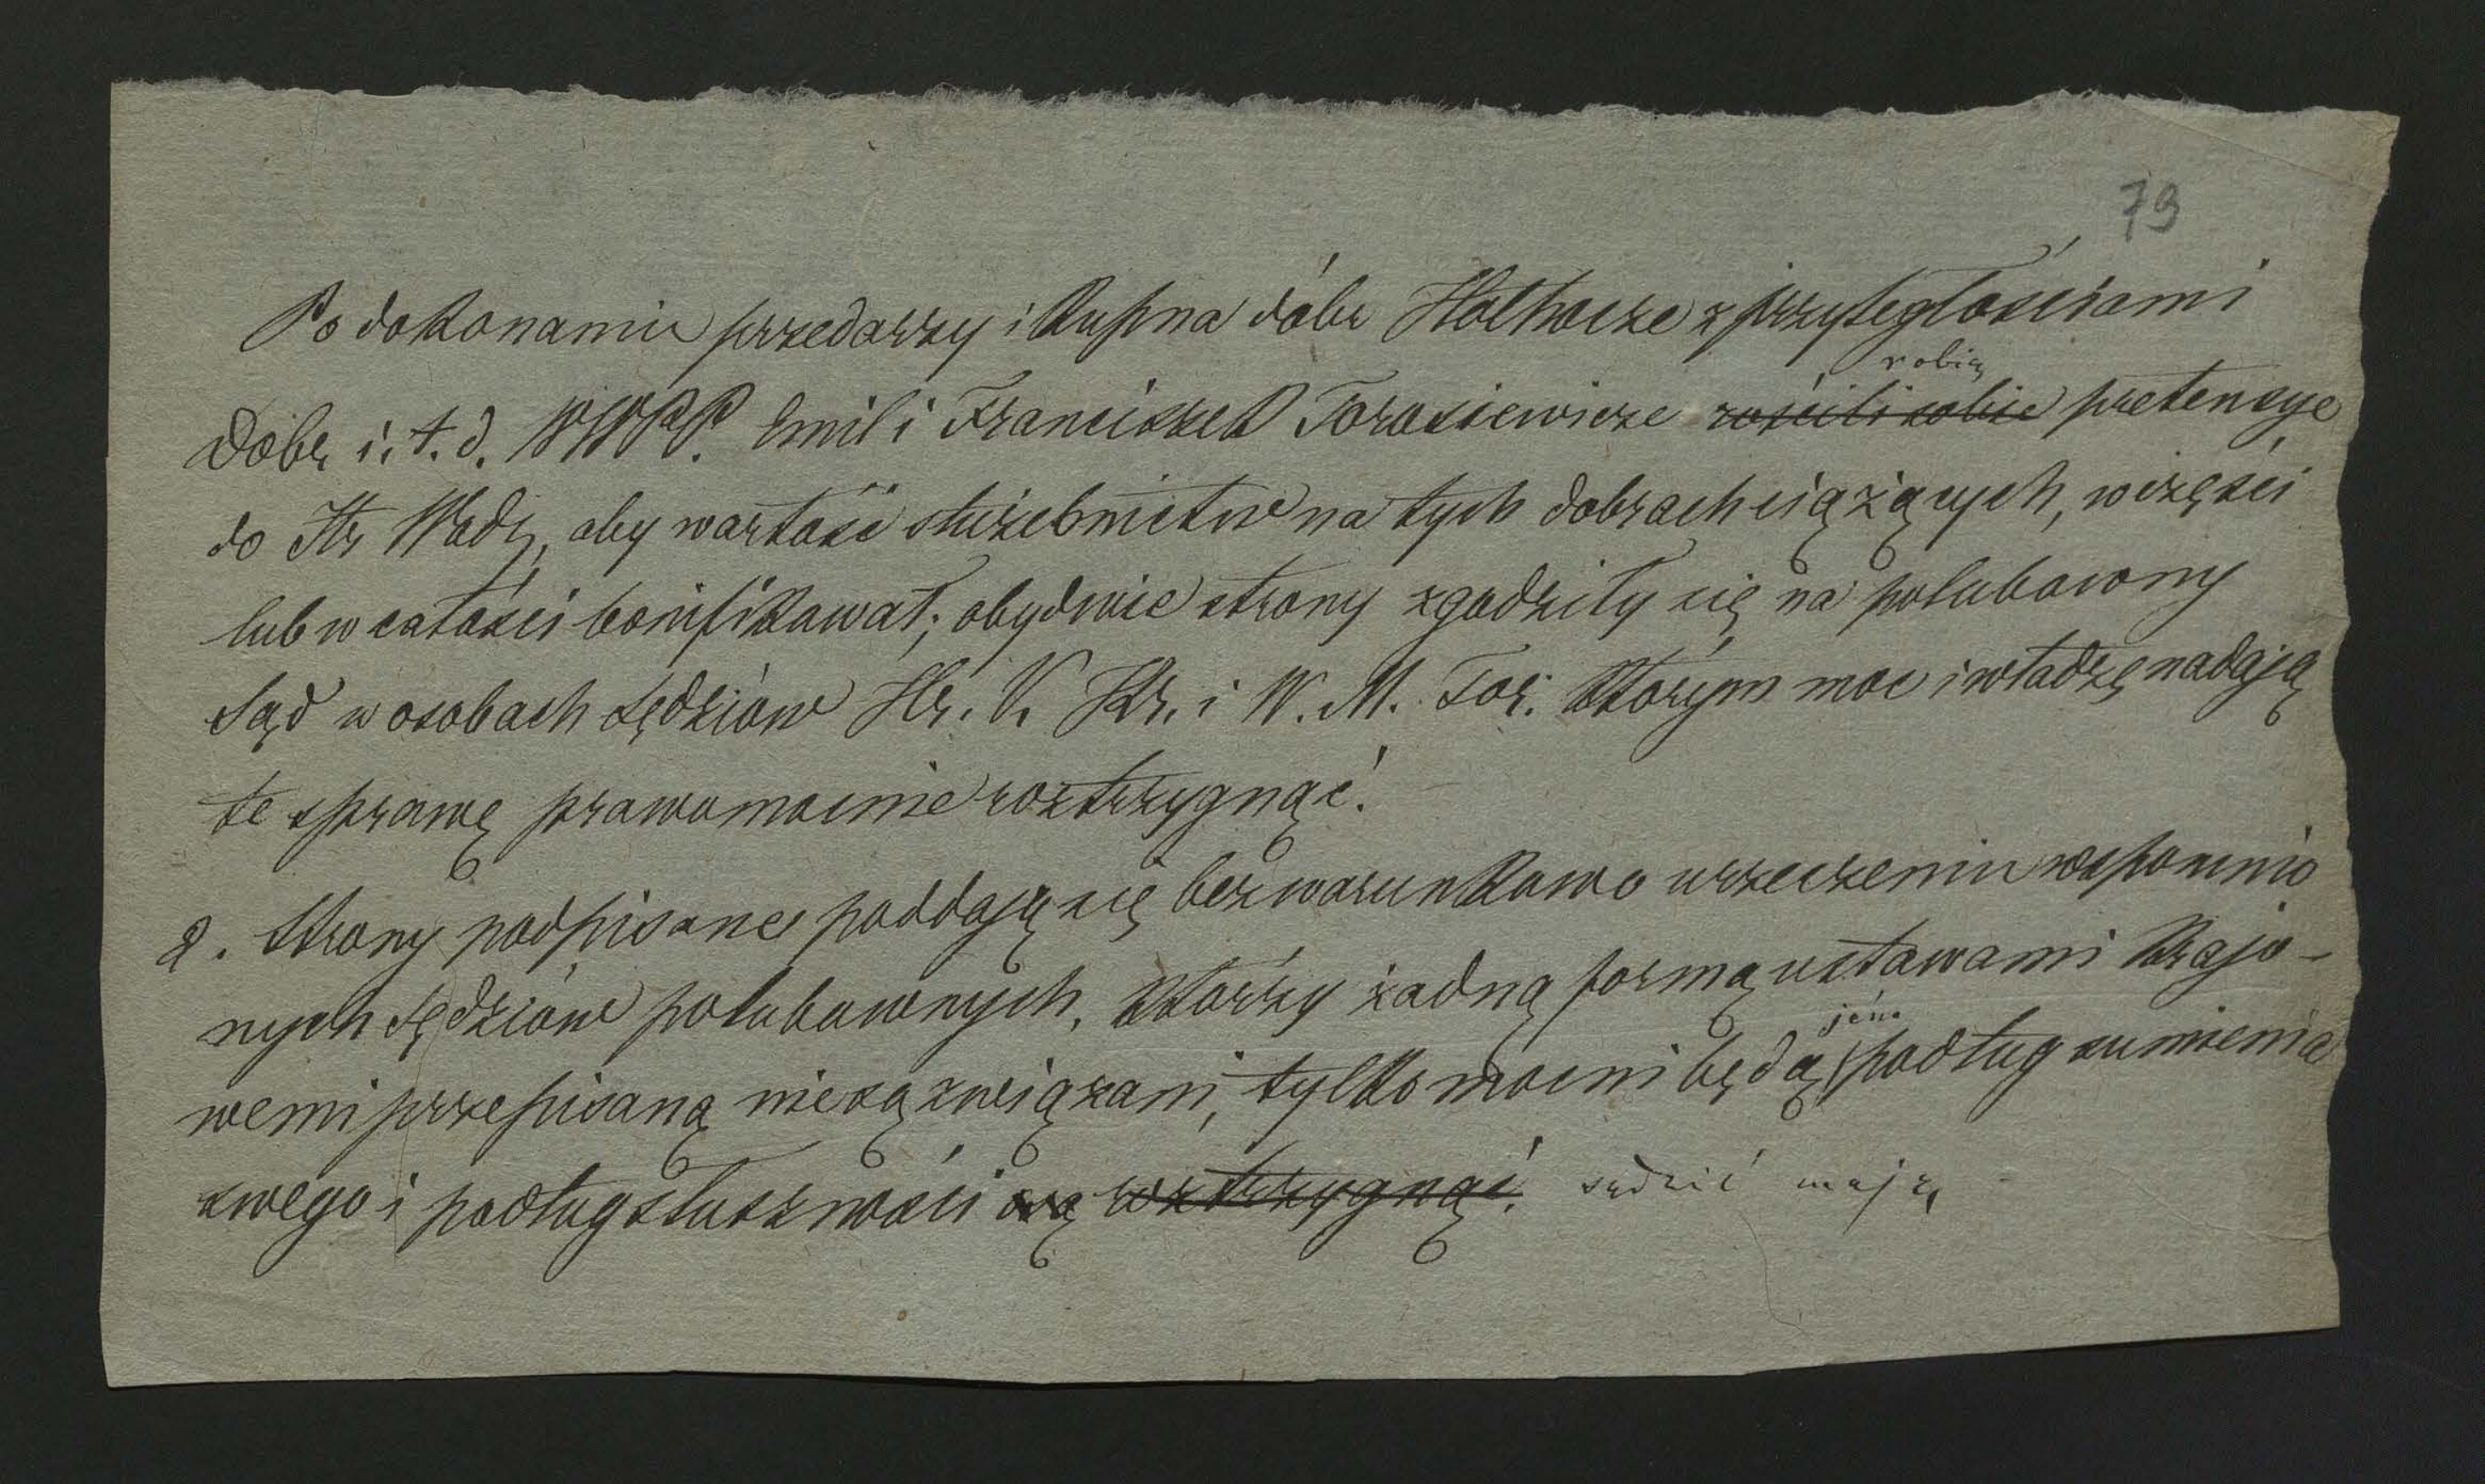 79
Po dokonaniu przedarzy i kupna dóbr Hołhocze z przyległościami
robią
Dobr i. t. d. WWPP. Emil i Franciszek Torosiewicze rościli sobie pretensye
do Hr Wodz, aby wartość służebnictw na tych dobrach ciążących, w części
lub w całości bonifikował; obydwie strony zgodziły się na polubowny
Sąd w osobach sędziów Hr. V. Kr. i W. M. Tor. którym moc i władzę nadają
te sprawę prawomocnie roztrzygnąć.
2. Strony podpisane poddają się bezwarunkowo urzeczeniu wspomnio
nych sędziów polubownych, którzy żadną formą ustawami krajo-
jéno
wemi przepisaną nie są związani, tylko mocni będą podług sumienia
swego i podług słuszności są roztrzygnąć. sądzić mają